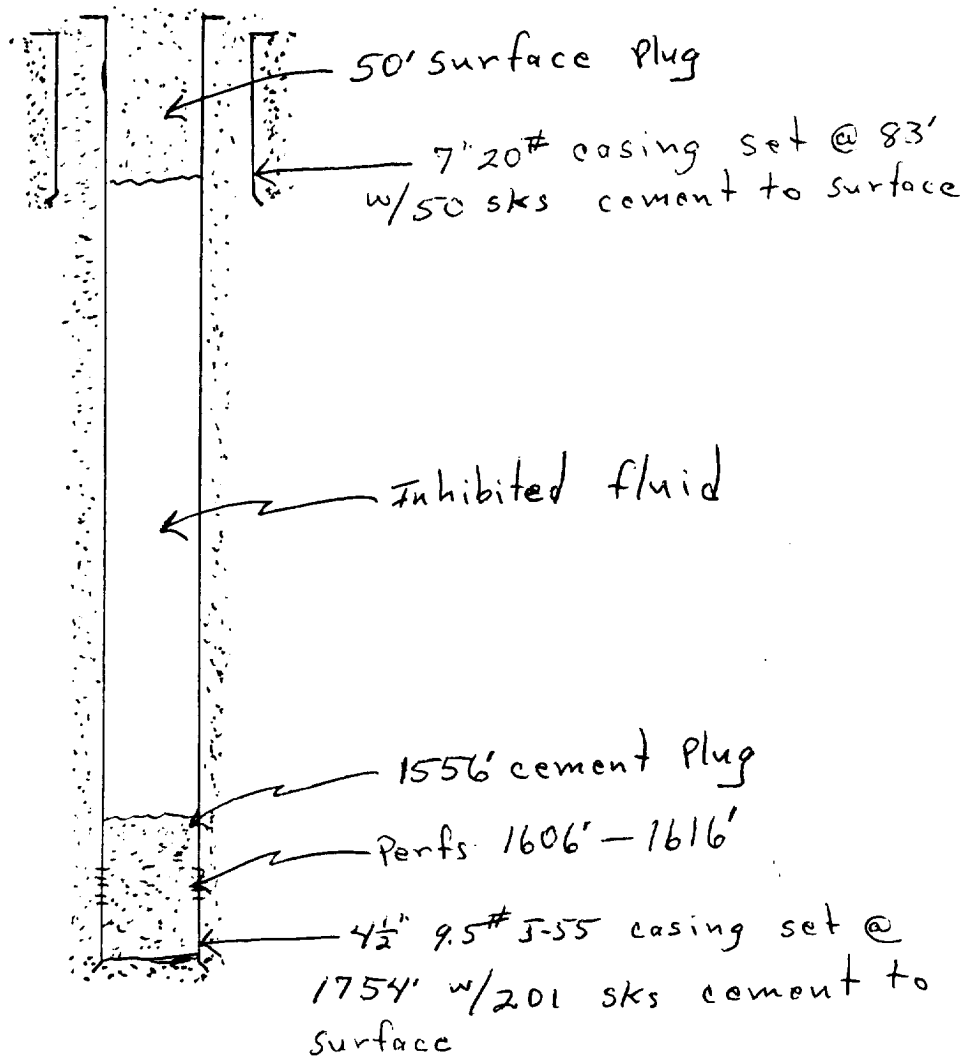 50' surface Plug
7" 20# casing set @ 83'
w/50 sks cement to surface
Inhibited fluid
1556' cement Plug
Perfs 1606' – 1616'
4½" 9.5# J-55 casing set @
1754' w/201 sks cement to
surface